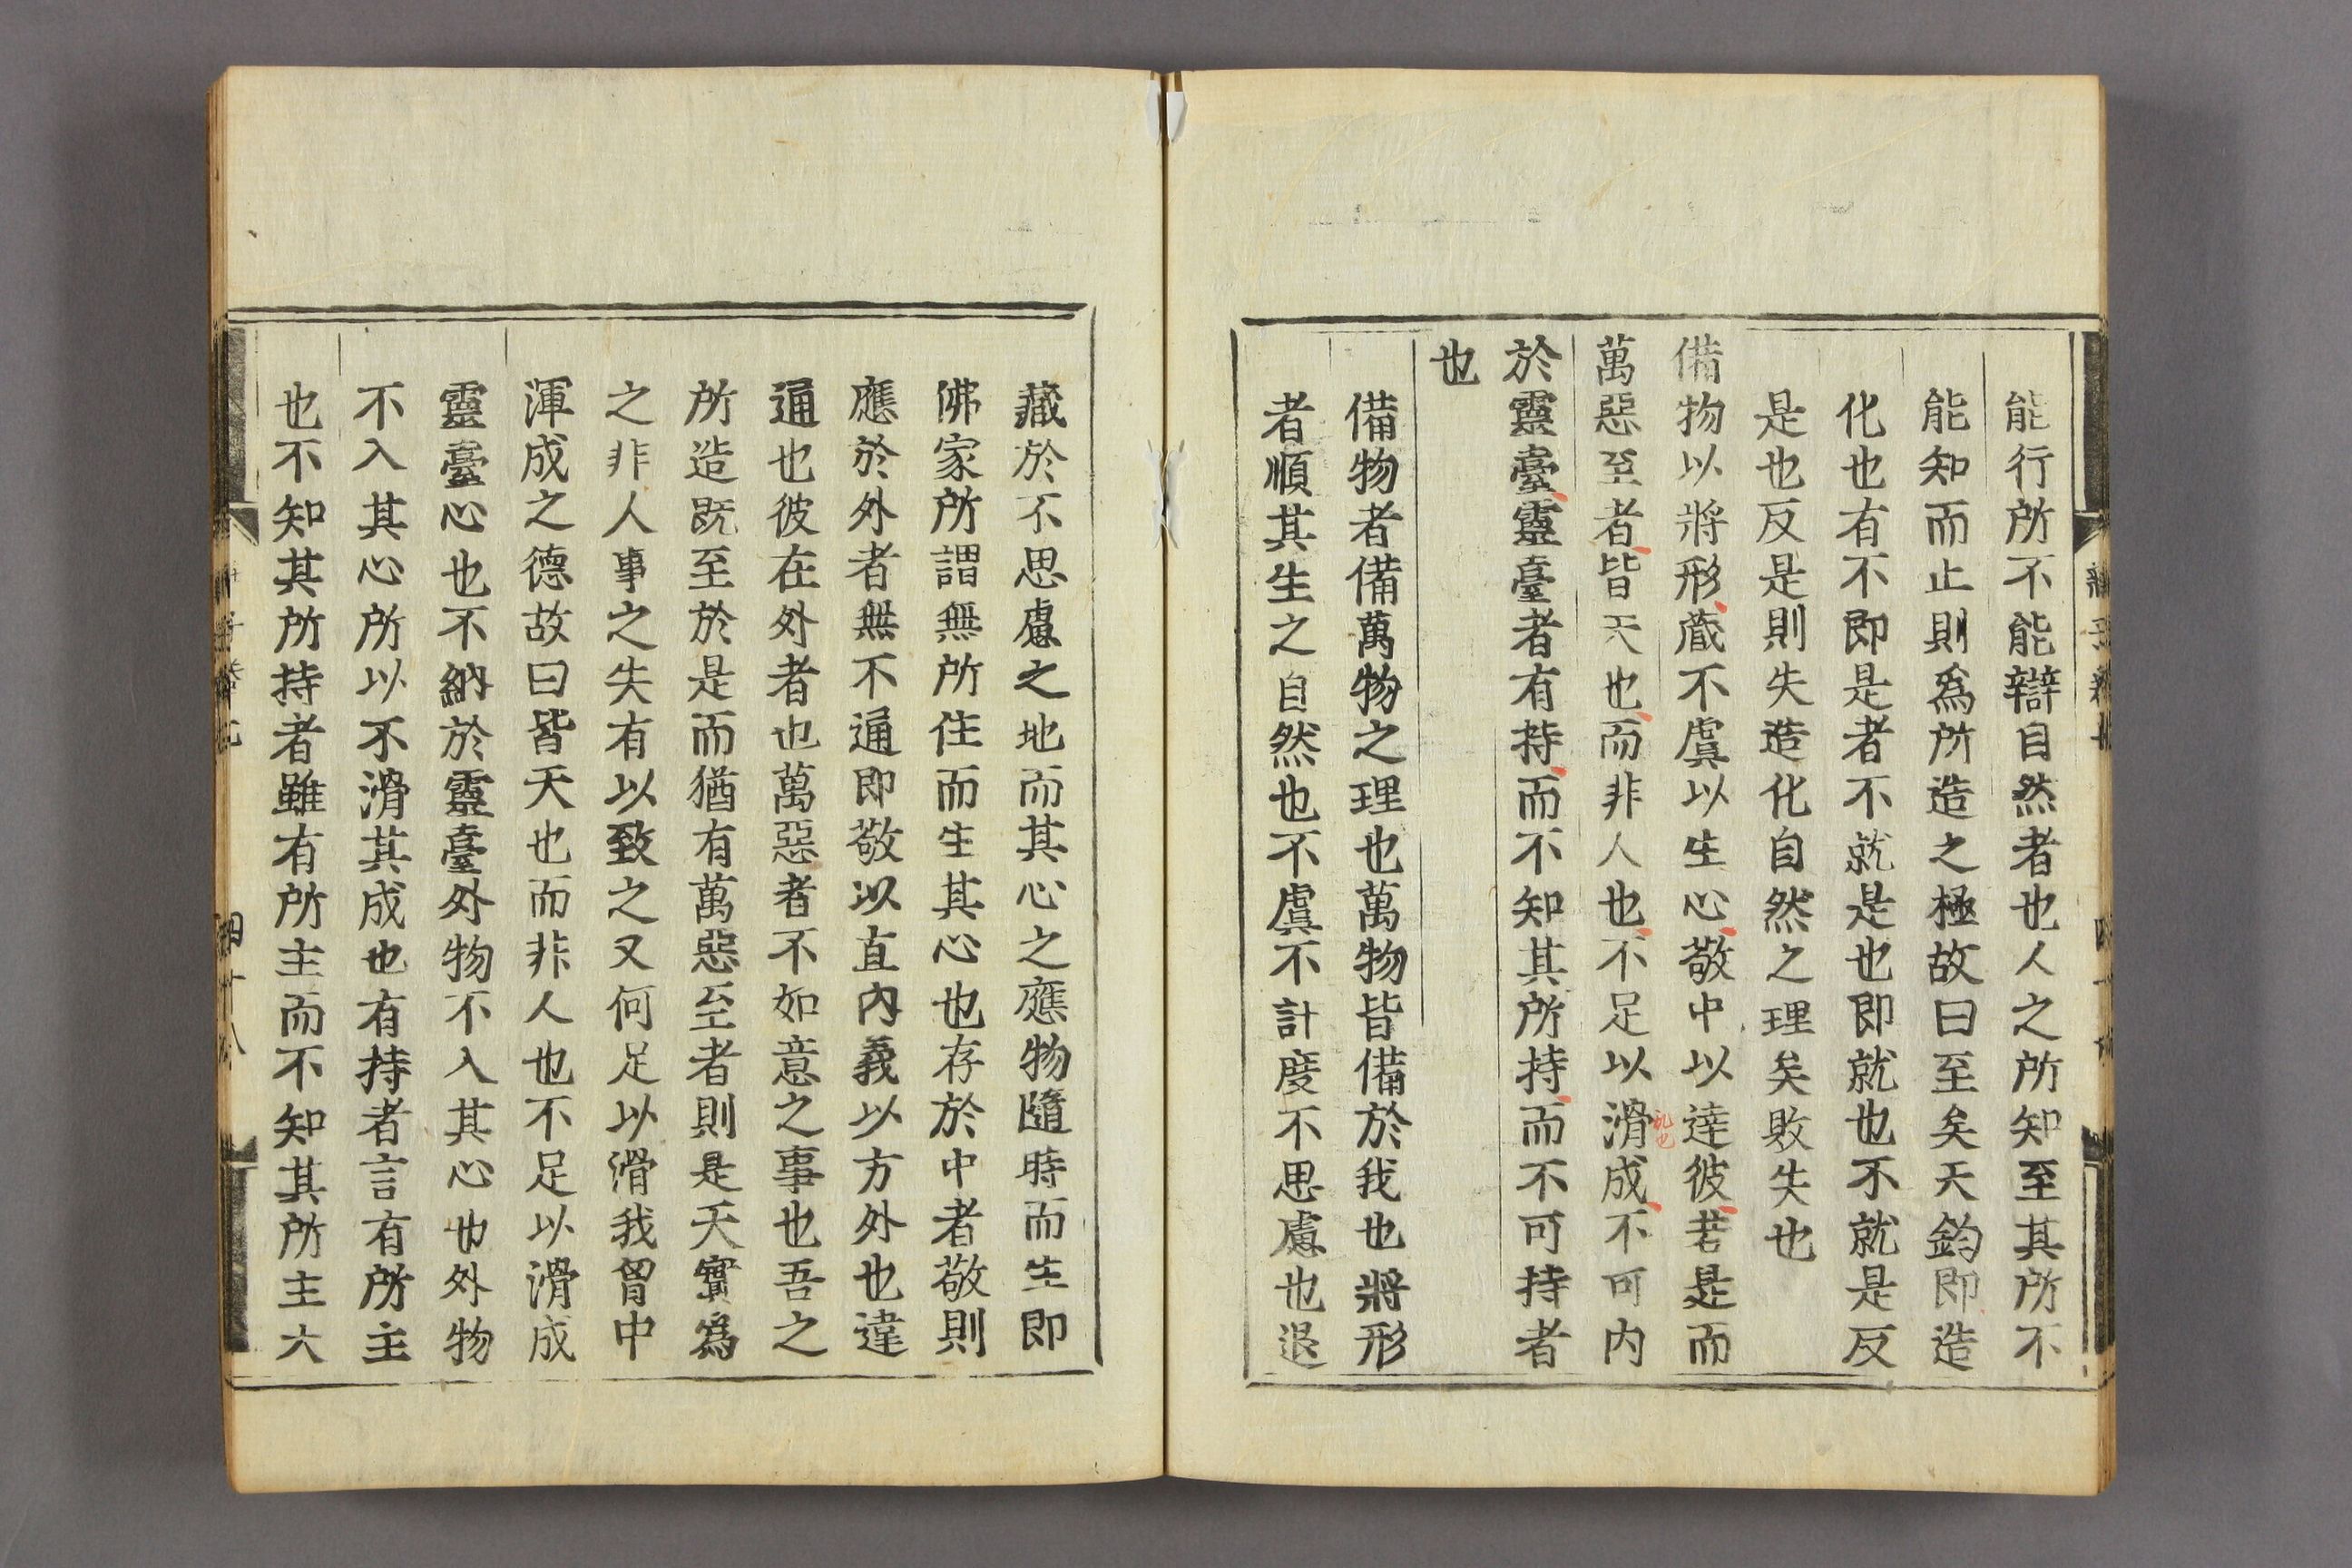 能行所不能辯自然者也人之所知至其所不
能知而止則為所造之極故曰至矣天鈞即造
化也有不即是者不就是也即就也不就是反
是也反是則失造化自然之理矣敗失也
備物以將形藏不虞以生心敬中以達彼若是而
萬惡至者皆天也而非人也不足以滑成不可內
亂也
於靈臺靈臺者有持而不知其所持而不可持者
也
備物者備萬物之理也萬物皆備於我也將形
者順其生之自然也不虞不計度不思慮也退
藏於不思慮之地而其心之應物隨時而生即
佛家所謂無所住而生其心也存於中者敬則
應於外者無不通即敬以直內義以方外也達
通也彼在外者也萬惡者不如意之事也吾之
所造既至於是而猶有萬惡至者則是天實為
之非人事之失有以致之又何足以滑我胷中
渾成之德故曰皆天也而非人也不足以滑成
靈臺心也不納於靈臺外物不入其心也外物
不入其心所以不滑其成也有持者言有所主
也不知其所持者雖有所主而不知其所主六
四十八